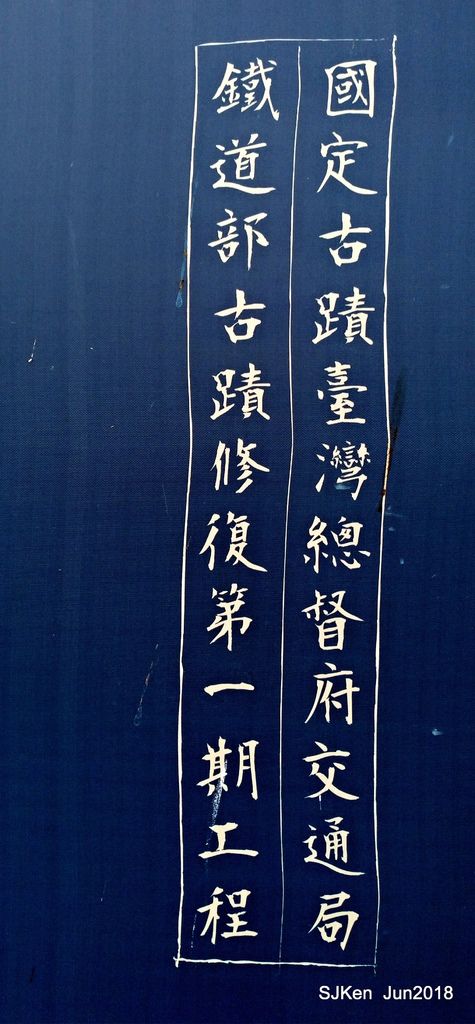 國定古蹟臺灣總督府交通局
鐵道部古蹟修復第一期工程
SJKen Jun2018